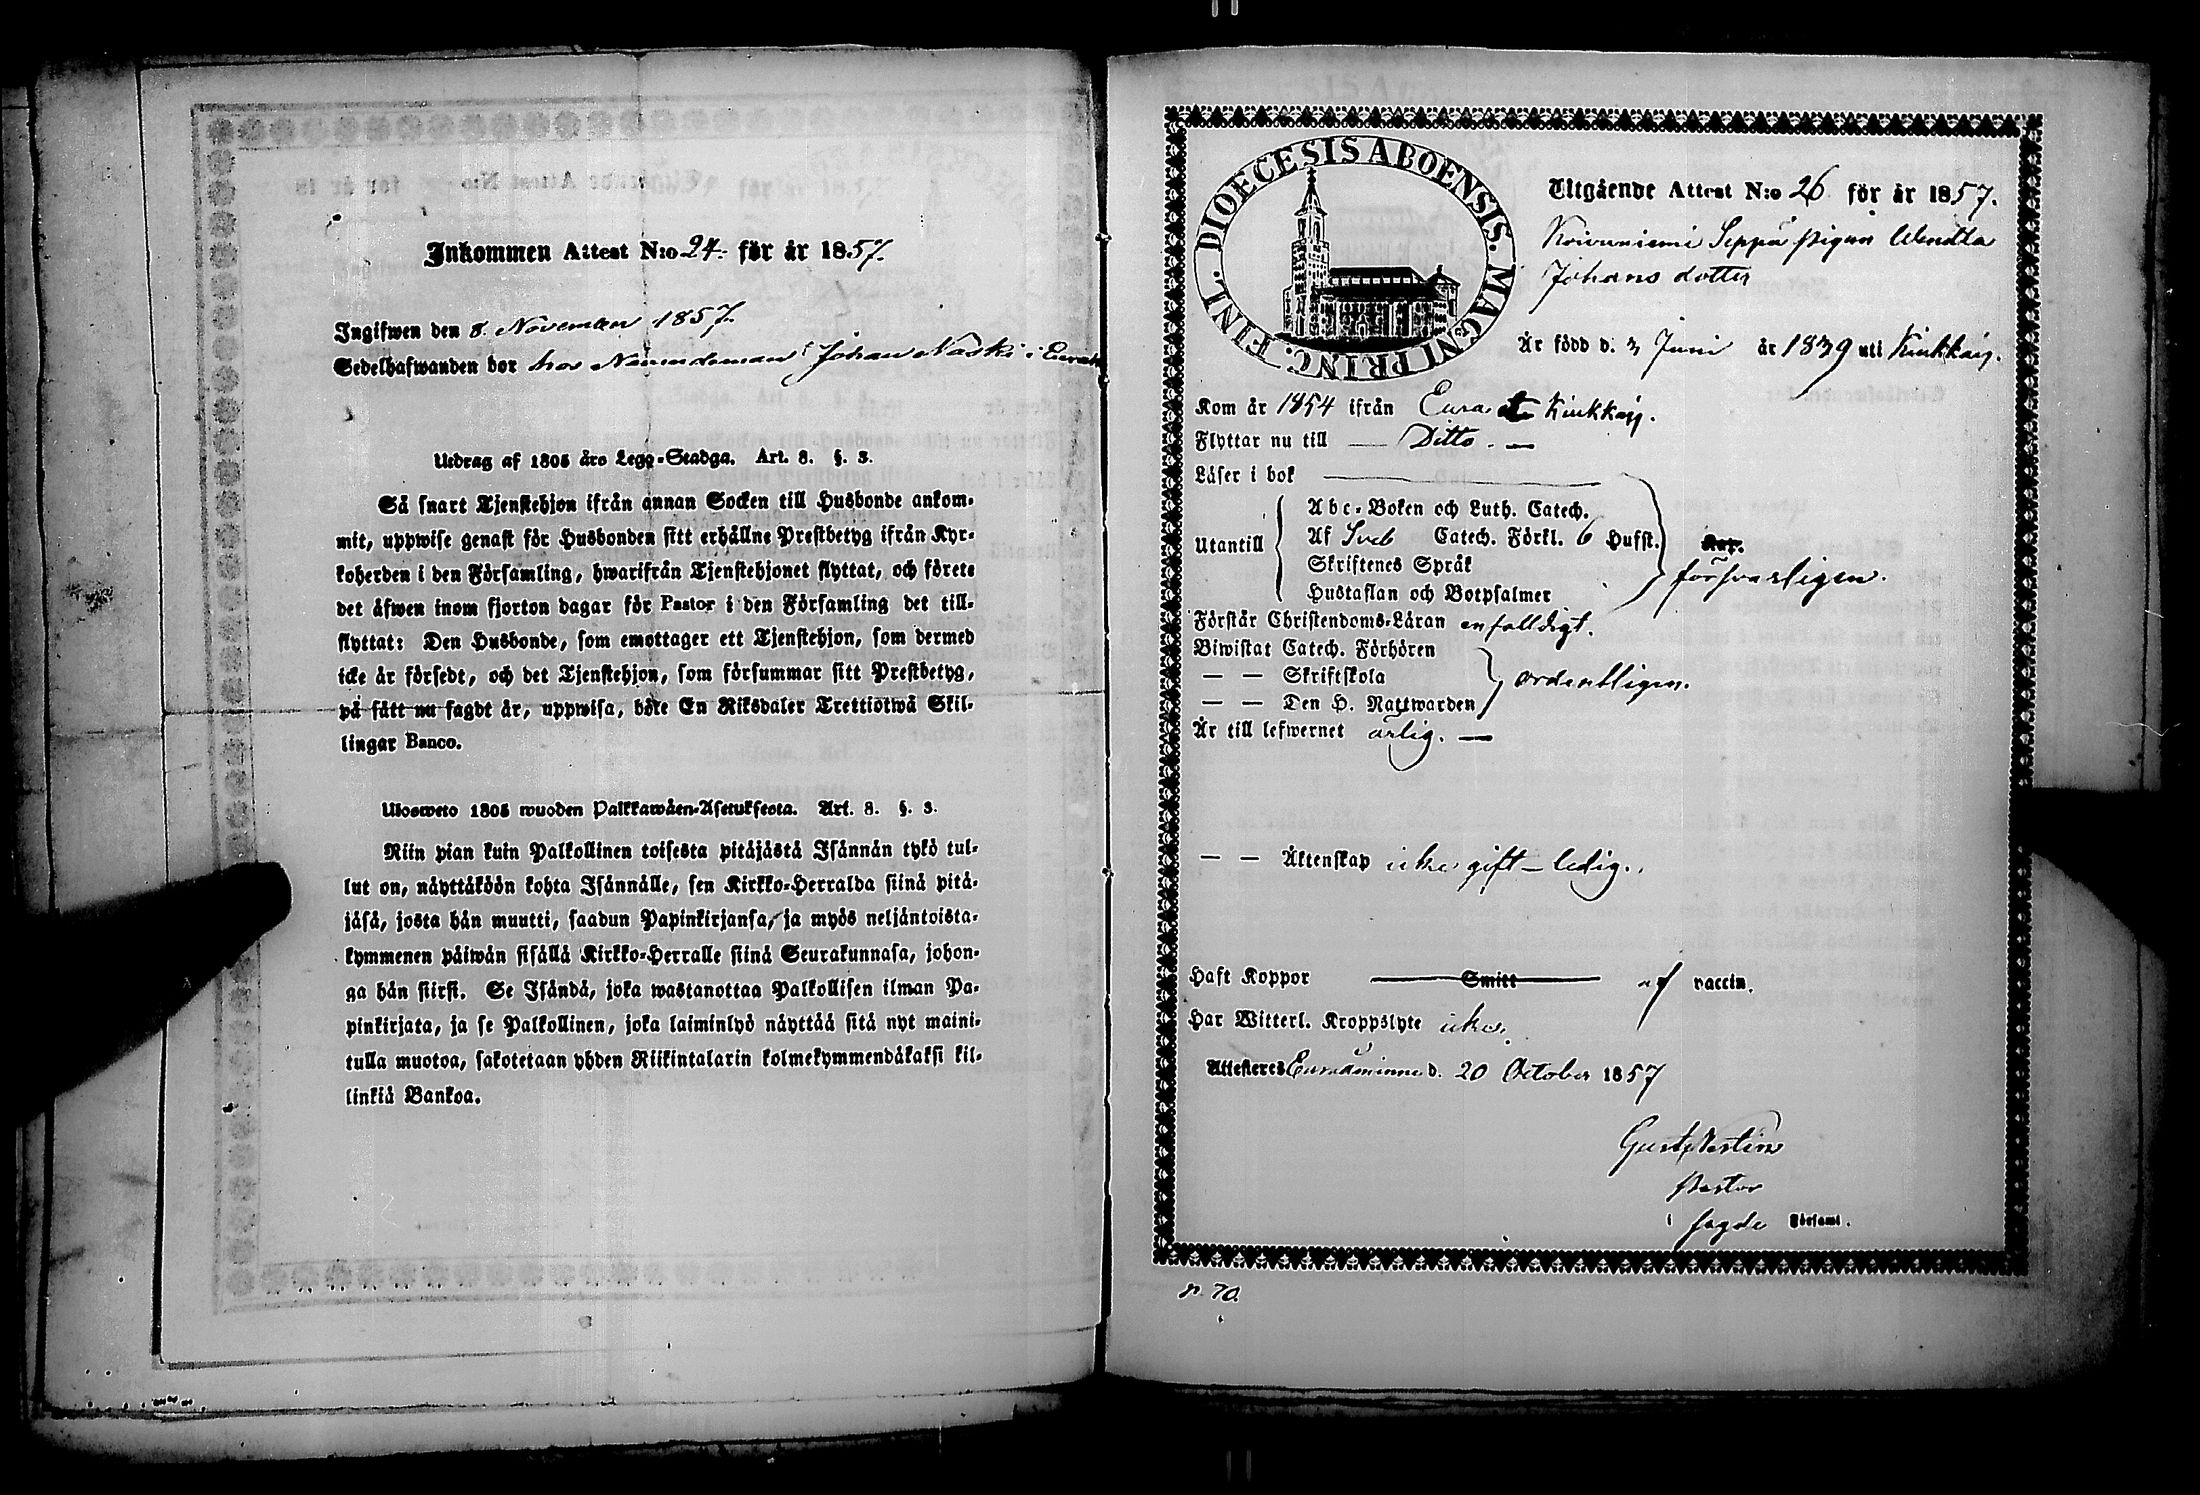 Inkommen Attest N:o 24. för år 1857.
Ingifwen den 8. November 1857.
Sedelhafwanden bor hos Nämndeman Johan Naski i Eura
Utdrag af 1805 års Lego-Stadga. Art. 8. §. 3.
Så snart Tjenstehjon ifrån annan Socken till Husbonde ankom-
mit, uppwise genast för Husbonden sitt erhållne Prestbetyg ifrån Kyr-
koherden i den Församling, hwarifrån Tjenstehjonet flyttat, och förete
det äfwen inom fjorton dagar för Pastor i den Församling det till-
flyttat: Den Husbonde, som emottager ett Tjenstehjon, som dermed
icke är försedt, och det Tjenstehjon, som försummar sitt Prestbetyg,
på sätt nu sagdt är, uppwisa, böte En Riksdaler Trettiotwå Skil-
lingar Banco.
Ulosweto 1805 wuoden Palkkawäen-Asetuksesta. Art. 8. §. 3.
Niin pian kuin Palkollinen toisesta pitäjästä Isännän tykö tul-
lut on, näyttäköön kohta Isännälle, sen Kirkko-Herralda siinä pitä-
jäsä, josta hän muutti, saadun Papinkirjansa, ja myös neljäntoista-
kymmenen päiwän sisällä Kirkko-Herralle siinä Seurakunnasa, johon-
ga hän siirsi. Se Isändä, joka wastanottaa Palkollisen ilman Pa-
pinkirjata, ja se Palkollinen, joka laiminlyö näyttää sitä nyt maini-
tulla muotoa, sakotetaan yhden Riikintalarin kolmekymmendäkaksi kil-
linkiä Bankoa.
DIOECESIS ABOENSIS. MAGNI PRINC. FINL.
Utgående Attest N:o 26 för år 1857.
Koivuniemi Seppä pigan Wendla
Johans dotter
Är född d. 3 Juni år 1839 uti Kiukkais.
Kom år 1854 ifrån Eura Kiukkais.
Flyttar nu till — Ditto. —
Läser i bok
Abc-Boken och Luth. Catech.
Utantill Af Sveb Catech. Förkl. 6 Hufst.
Skriftenes Språk
Hustaflan och Botpsalmer
försvarligen.
Förstår Christendoms-Läran enfalldigt.
Biwistat Catech. Förhören
— — Skriftskola ordentligen.
— — Den H. Nattwarden
Är till lefwernet ärlig. —
— — Äktenskap icke gift — ledig.
Haft Koppor Smitt af vaccin.
Har Witterl. Kroppslyte icke.
Attesteres Euraåminne d. 20 October 1857
Gust. 
Pastor
i sagde Församl.
70.